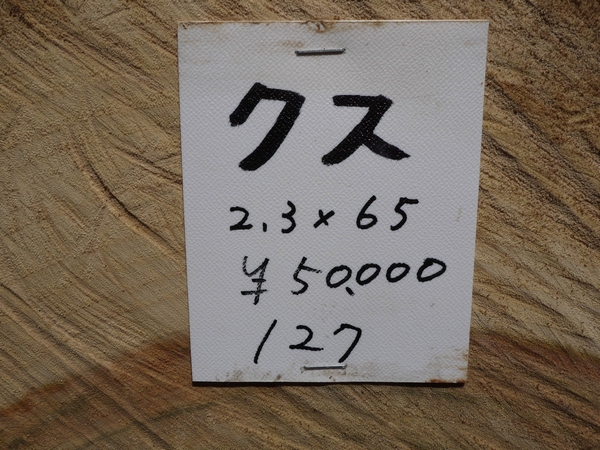 クス
2.3×65
¥50,000
127